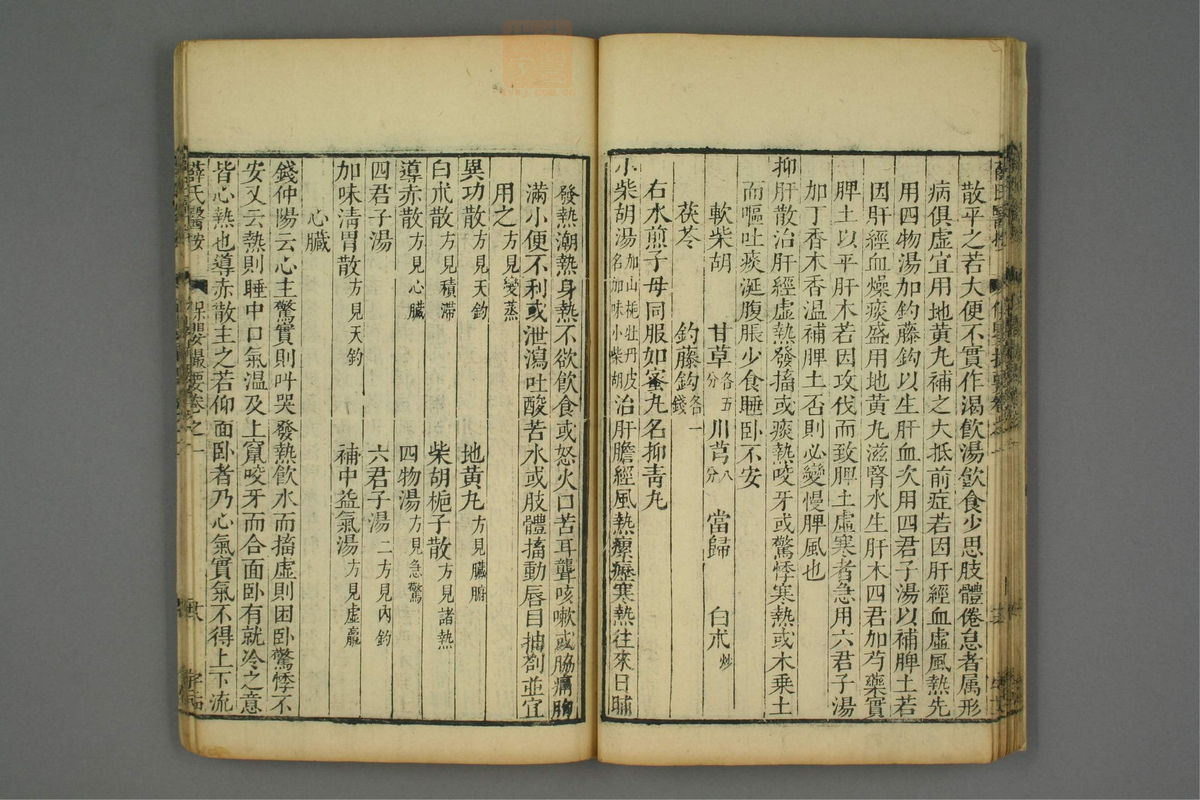 散平之若大便不實作渴飲湯飲食少思肢體倦怠者属形
病俱虛宜用地黄丸補之大抵前症若因肝經血虛風熱先
用四物湯加釣藤鈎以生肝血次用四君子湯以補脾土若
因肝經血燥痰盛用地黄丸滋腎水生肝木四君加芍藥實
脾土以平肝木若因攻伐而致脾土虛寒者急用六君子湯
加丁香木香温補脾土否則必變慢脾風也
抑肝散治肝經虛熱發搐或痰熱咬牙或驚悸寒熱或木乗土
而嘔吐痰涎腹脹少食睡卧不安
軟柴胡 甘草各五分 川芎八分 當歸 白朮炒
茯苓 釣藤鈎各一錢
右水煎子母同服如蜜丸名抑靑丸
小柴胡湯加山梔牡丹皮名加味小柴胡治肝膽經風熱瘰癧寒熱往來日晡
發熱潮熱身熱不欲飲食或怒火口苦耳聾咳嗽或脇痛胸
滿小便不利或泄瀉吐酸苦水或肢體搐動唇目抽劄並宜
用之方見變蒸
異功散方見天釣 地黄丸方見臟腑
白朮散方見積滯 柴胡梔子散方見諸熱
導赤散方見心臟 四物湯方見急驚
四君子湯 六君子湯二方見內釣
加味淸胃散方見天釣 補中益氣湯方見虛羸
心臟
錢仲陽云心主驚實則呌哭發熱飲水而搐虛則困卧驚悸不
安又云熱則睡中口氣温及上竄咬牙而合面卧有就冷之意
皆心熱也導赤散主之若仰面卧者乃心氣實氣不得上下流
薛氏醫按 保嬰撮要卷之一